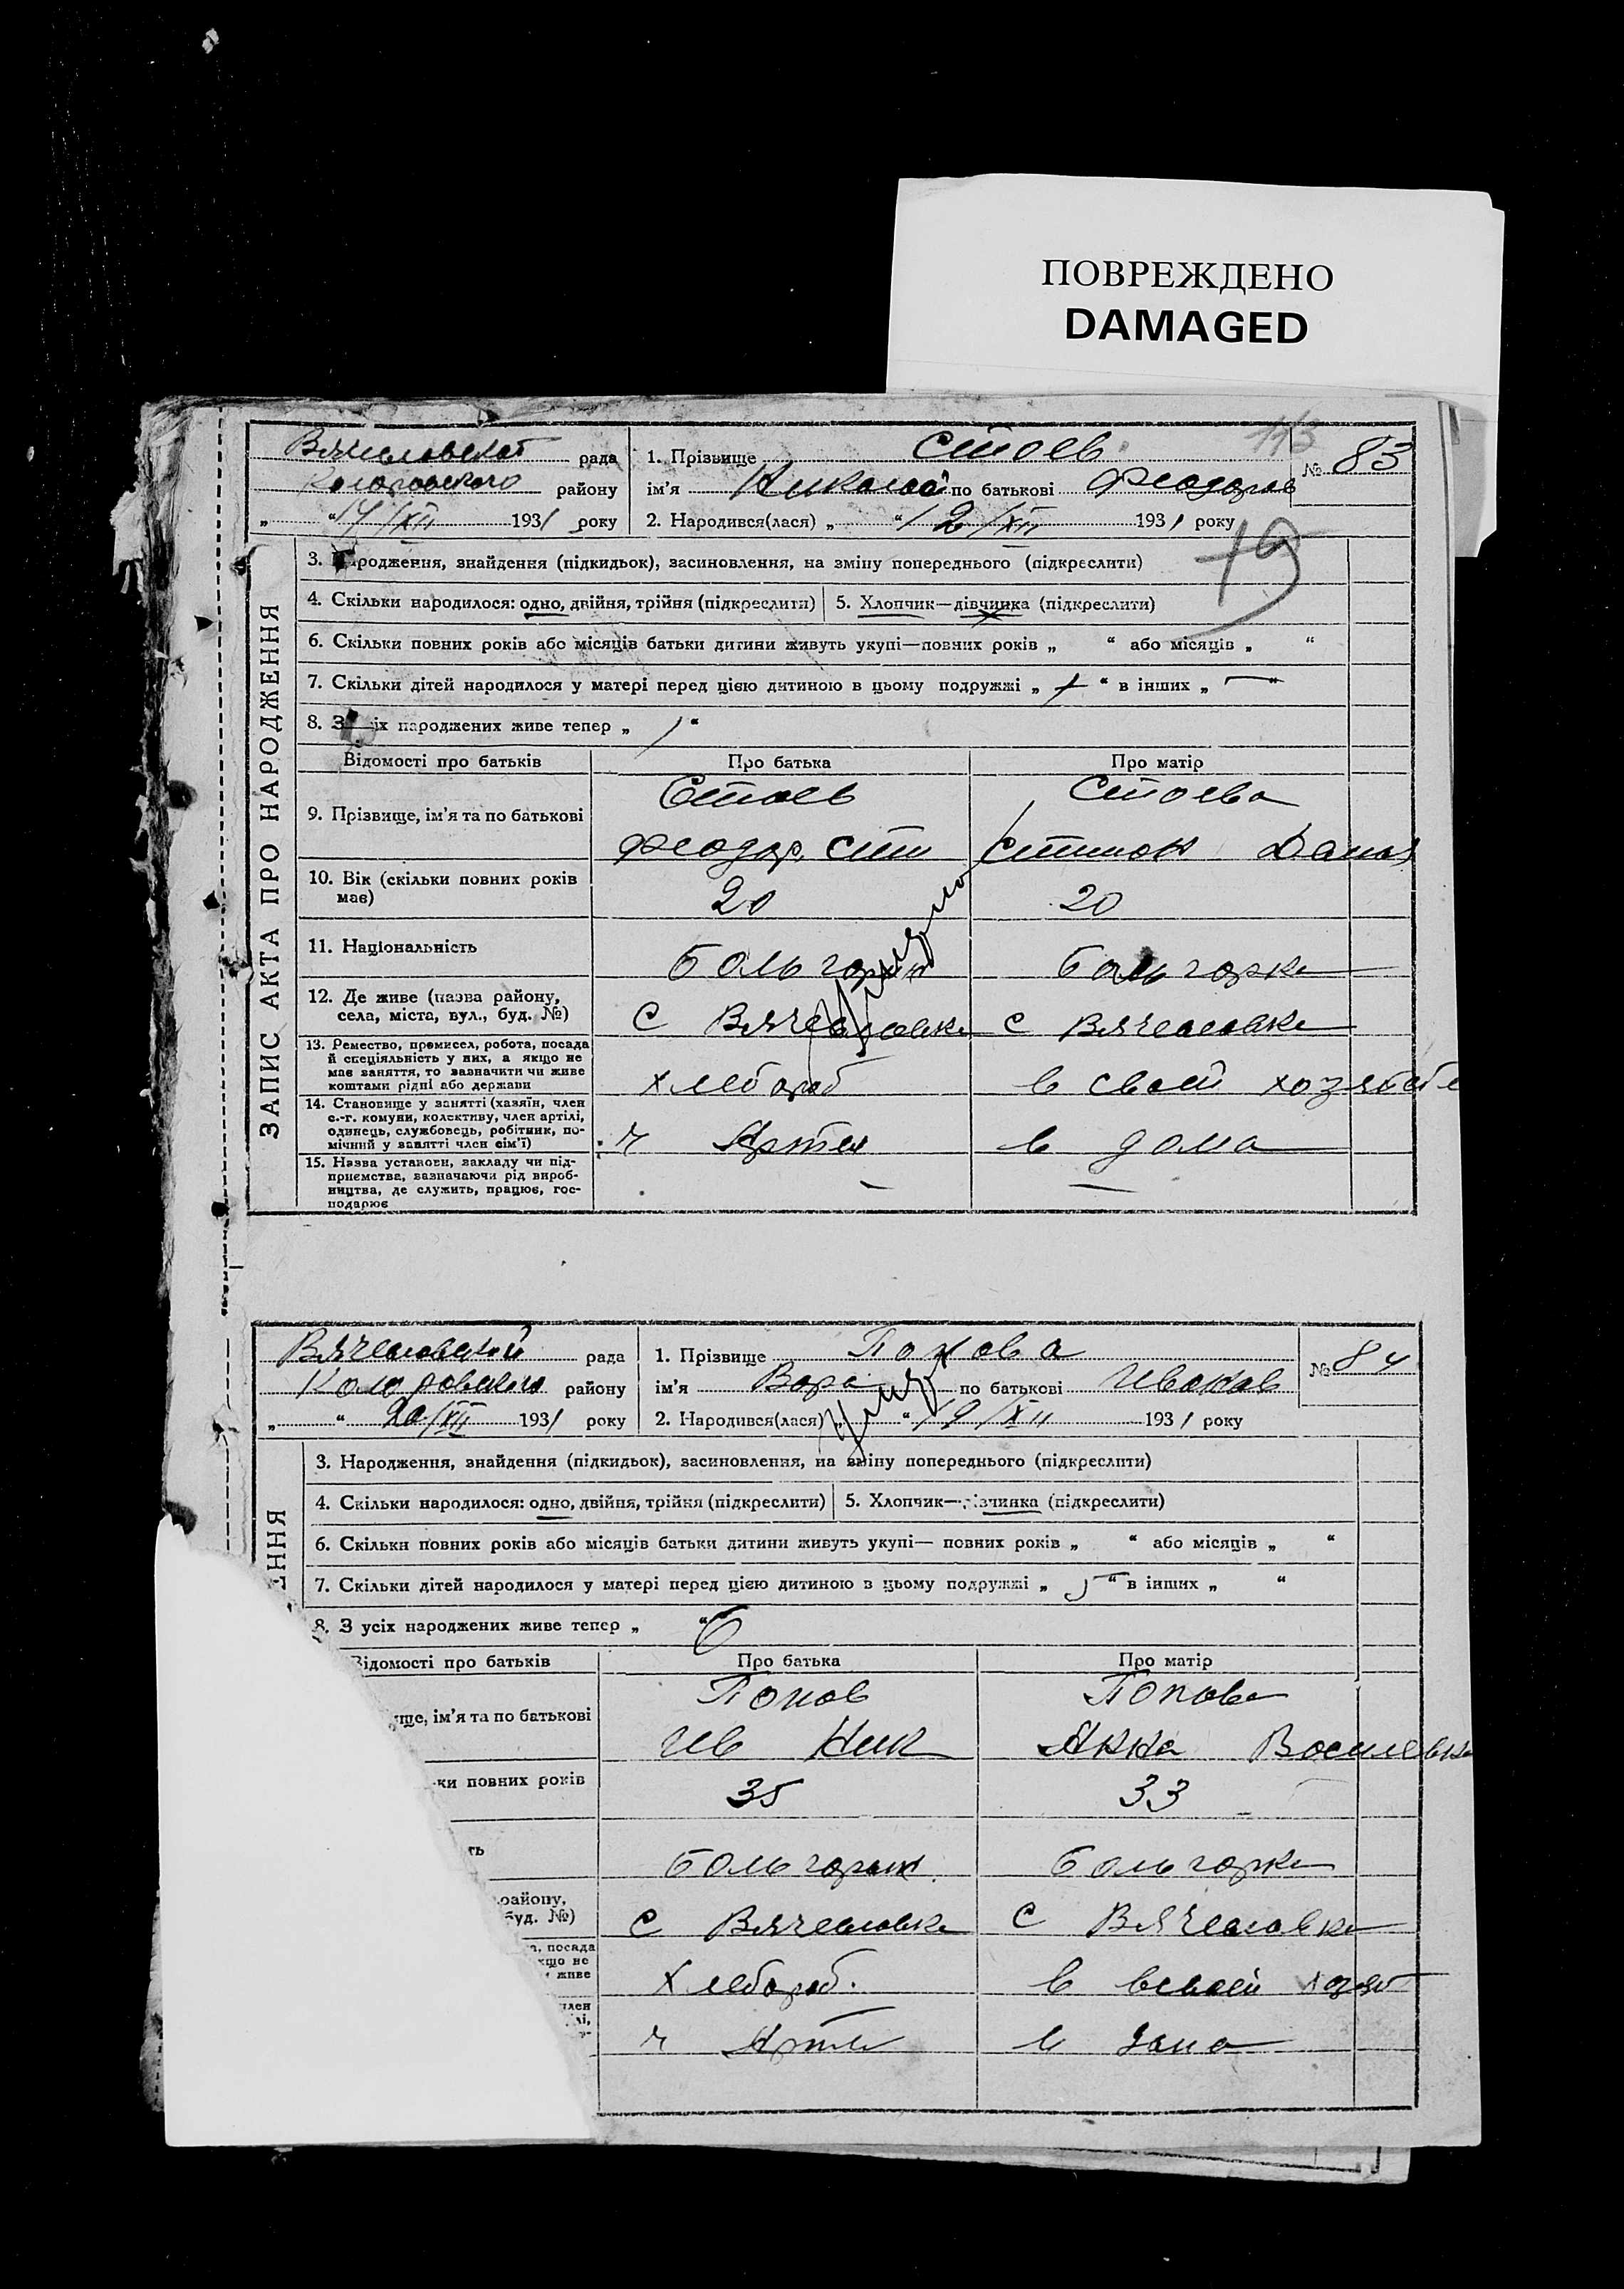 ПОВРЕЖДЕНО
DAMAGED
рада
району
17/XII 1931 року
1. Прізвище Стоев
ім'я Николай по батькові Феодоров
2. Народився(лася) „ “ 12/XII 1931 року
№ 83
19
ЗАПИС АКТА ПРО НАРОДЖЕННЯ
3. родження, знайдення (підкидьок), засиновлення, на зміну попереднього (підкреслити)
4. Скільки народилося: одно, двійня, трійня (підкреслити) 5. Хлопчик—дівчинка (підкреслити)
6. Скільки повних років або місяців батьки дитини живуть укупі—повних років „ “ або місяців „ “
7. Скільки дітей народилося у матері перед цією дитиною в цьому подружжі „ “ в інших „ — “
8. З іх народжених живе тепер „ 1 “
Відомості про батьків Про батька Про матір
9. Прізвище, ім'я та по батькові
Стоев Стоева
Феодор Ст
10. Вік (скільки повних років має)
20 20
11. Національність
Больгорин больгорке
12. Де живе (назва району, села, міста, вул., буд. №)
с Вячеславке с Вячеславке
13. Ремество, промисел, робота, посада
й спеціяльність у них, а якщо не
має заняття, то зазначити чи живе
коштами рідні або держави
хлебороб в своей
14. Становище у занятті (хазяїн, член
с.-г. комуни, колективу, член артілі,
одинець, службовець, робітник, по-
мічний у занятті член сім'ї)
ч Артел в дома
15. Назва установи, закладу чи під-
приємства, зазначаючи рід вироб-
ництва, де служить, працює, гос-
подарює
— —
Вячеславской рада
Коларовского району
„ “ 20/XII 1931 року
1. Прізвище Попова
ім'я Вера по батькові Иванов
2. Народився(лася) „ “ 19/XII 1931 року
№ 84
ЕННЯ
3. Народження, знайдення (підкидьок), засиновлення, на зміну попереднього (підкреслити)
4. Скільки народилося: одно, двійня, трійня (підкреслити) 5. Хлопчик—дівчинка (підкреслити)
6. Скільки повних років або місяців батьки дитини живуть укупі— повних років „ “ або місяців „ “
7. Скільки дітей народилося у матері перед цією дитиною в цьому подружжі „ 5 “ в інших „ “
8. З усіх народжених живе тепер „ 6 “
Відомості про батьків Про батька Про матір
Попов Попова
ще, ім'я та по батькові
Ив Ник Анна
ки повних років
35 33
ть
больгорин больгорке
району,
буд. №)
с Вячеславке с Вячеславке
посада
кщо не
живе
Хлебороб. в
член
ч Артел в дома